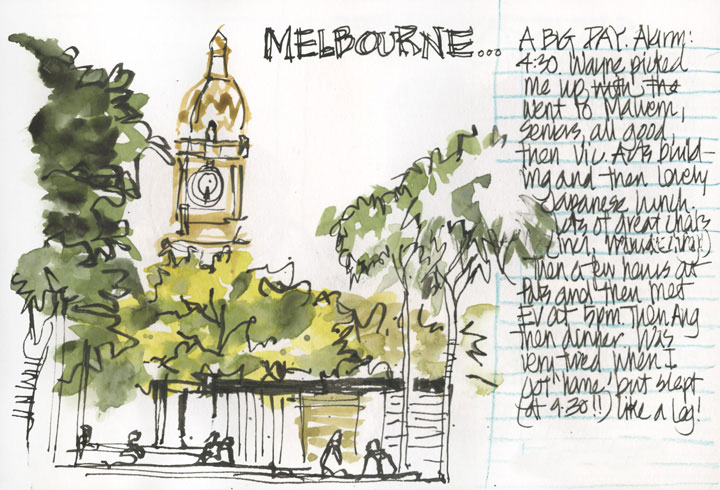 MELBOURNE...
A BIG DAY. Alarm:
4:30. Wayne picked
me up, with the
went to Malvern,
Seniors, all good,
then Vic. Arts build-
ing and then lovely
Japanese lunch.
Lots of great chats
(incl.
Then a few hours at
Pat's and then met
EV at 5pm. Then Avg
then dinner. Was
very tired when I
got home! but slept
(at 4:30!!) like a log!